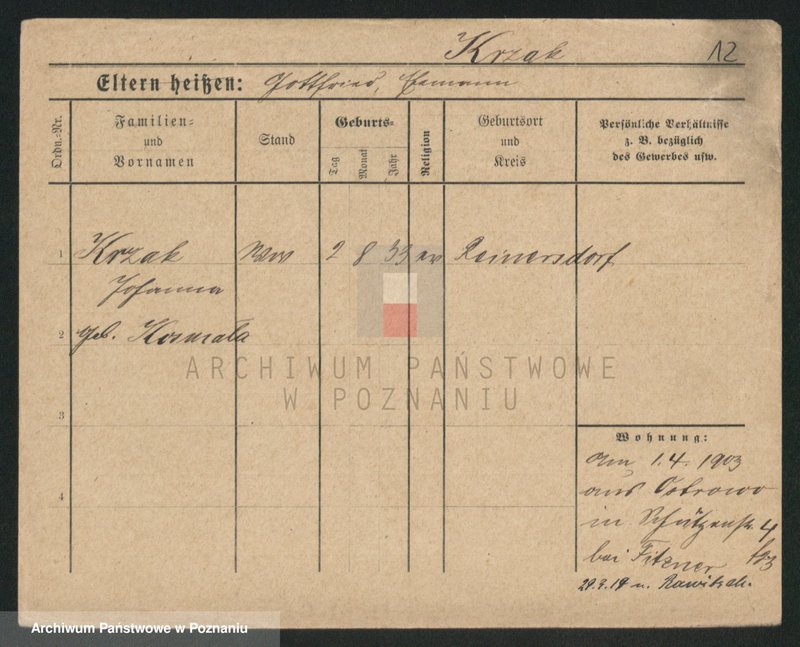 Krzak 12
Eltern heißen: Gottfried, Hermann
Ordn.-Nr.
Familien-
und
Vornamen
Stand
Geburts-
Tag
Monat
Jahr
Religion
Geburtsort
und
Kreis
Persönliche Verhältnisse
z. B. bezüglich
des Gewerbes usw.
1 Krzak Ww 2 8 33 ev Reinersdorf
Johanna
2 geb. Kosmala
ARCHIWUM PAŃSTWOWE
W POZNANIU
3
4
Wohnung:
am 1.4.1903
aus Ostrowo
in Schützenstr. 4
bei Fitzner
29.9.19 n. Rawitsch.
Archiwum Państwowe w Poznaniu